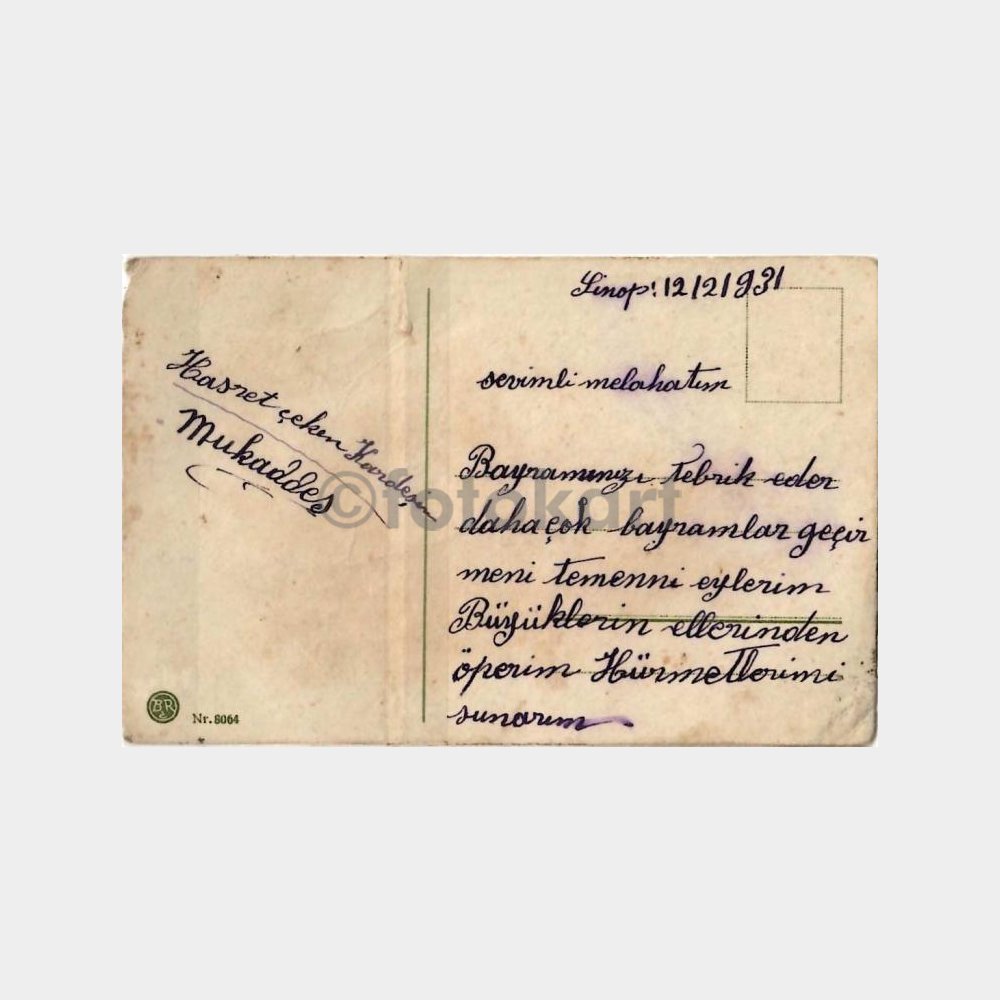 Sinop: 12/2/931
sevimli melahatım
Bayramınızı tebrik eder
daha çok bayramlar geçir
meni temenni eylerim
Büyüklerin ellerinden
öperim Hürmetlerimi
sunarım
Hasret çeken Kardeşin
Mukaddes
©fotokart
BR
Nr. 8064